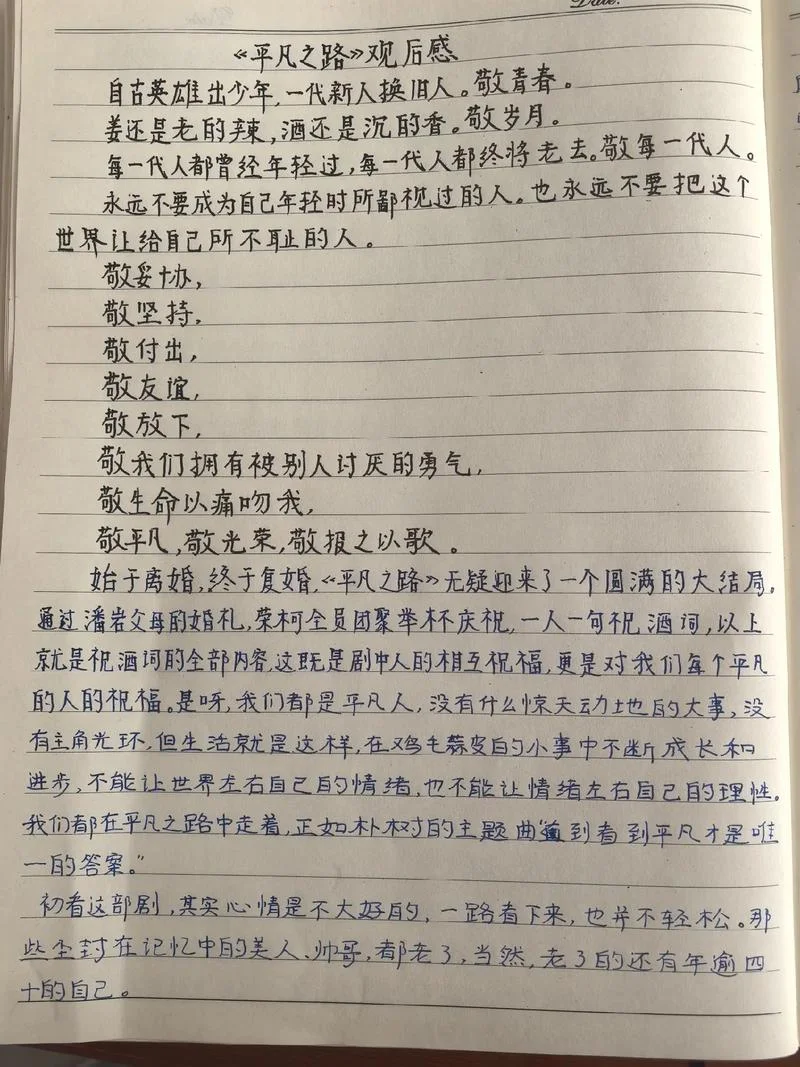 Date:
《平凡之路》观后感
自古英雄出少年,一代新人换旧人。敬青春。
姜还是老的辣,酒还是沉的香。敬岁月。
每一代人都曾经年轻过,每一代人都终将老去。敬每一代人。
永远不要成为自己年轻时所鄙视过的人。也永远不要把这个
世界让给自己所不耻的人。
敬妥协,
敬坚持,
敬付出,
敬友谊,
敬放下,
敬我们拥有被别人讨厌的勇气,
敬生命以痛吻我,
敬平凡,敬光荣,敬报之以歌。
始于离婚,终于复婚,《平凡之路》无疑迎来了一个圆满的大结局。
通过潘岩父母的婚礼,荣柯全员团聚举杯庆祝,一人一句祝酒词,以上
就是祝酒词的全部内容,这既是剧中人的相互祝福,更是对我们每个平凡
的人的祝福。是呀,我们都是平凡人,没有什么惊天动地的大事,没
有主角光环,但生活就是这样,在鸡毛蒜皮的小事中不断成长和
进步,不能让世界左右自己的情绪,也不能让情绪左右自己的理性。
我们都在平凡之路中走着,正如朴树的主题曲"直到看到平凡才是唯
一的答案。"
初看这部剧,其实心情是不大好的,一路看下来,也并不轻松。那
些尘封在记忆中的美人、帅哥,都老了,当然,老了的还有年逾四
十的自己。